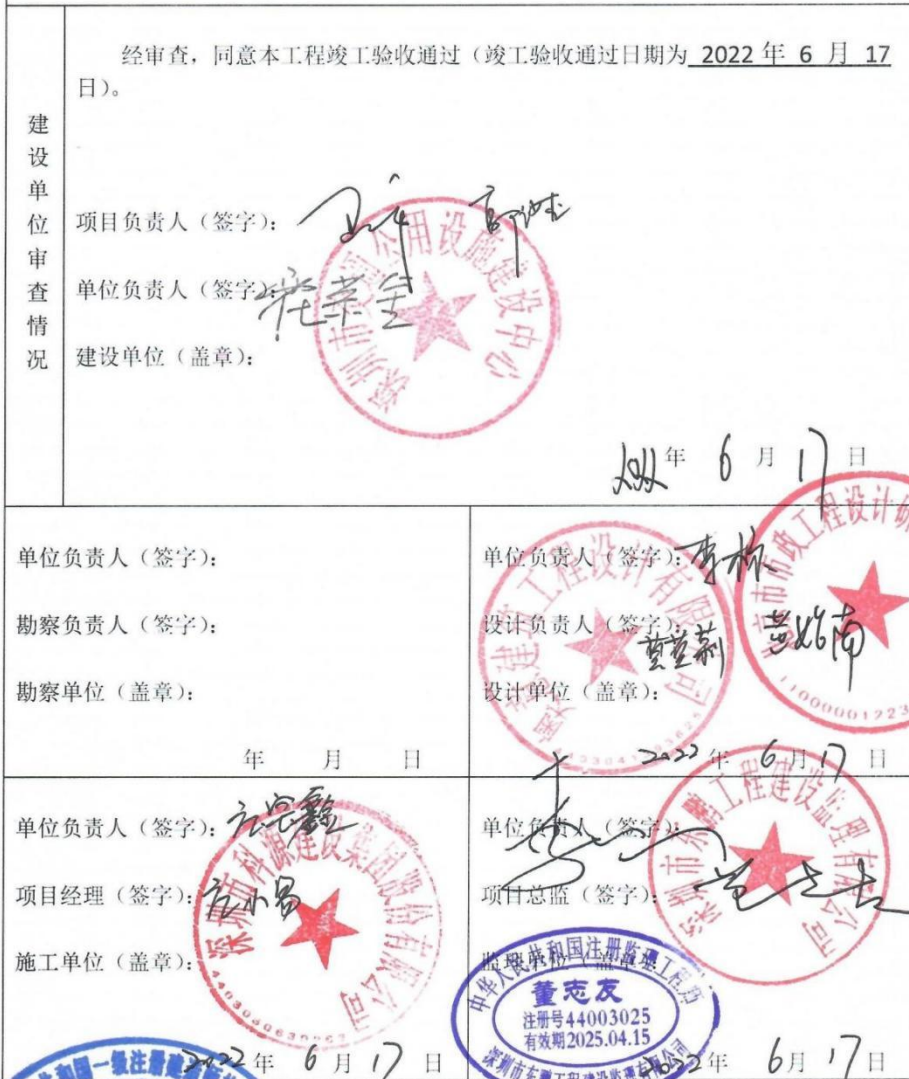 经审查，同意本工程竣工验收通过（竣工验收通过日期为 2022 年 6 月 17
日）。
建设单位审查情况
项目负责人（签字）：
单位负责人（签字）：
建设单位（盖章）：
深圳市 公用设施建设中心
年 6 月 17 日
单位负责人（签字）：
勘察负责人（签字）：
勘察单位（盖章）：
年 月 日
单位负责人（签字）：李栋
设计负责人（签字）：
设计单位（盖章）：
建筑工程设计有限公司
市政工程设计研
2022 年 6 月 17 日
单位负责人（签字）：
项目经理（签字）：
施工单位（盖章）：
深圳市科源建设集团股份有限公司
2022 年 6 月 17 日
单位负责人（签字）：
项目总监（签字）：
监理单位（盖章）：
深圳市东鹏工程建设监理有限公司
中华人民共和国注册监理工程师
董志友
注册号44003025
有效期2025.04.15
深圳市东鹏工程建设监理有限公司
2022 年 6 月 17 日
和国一级注册建